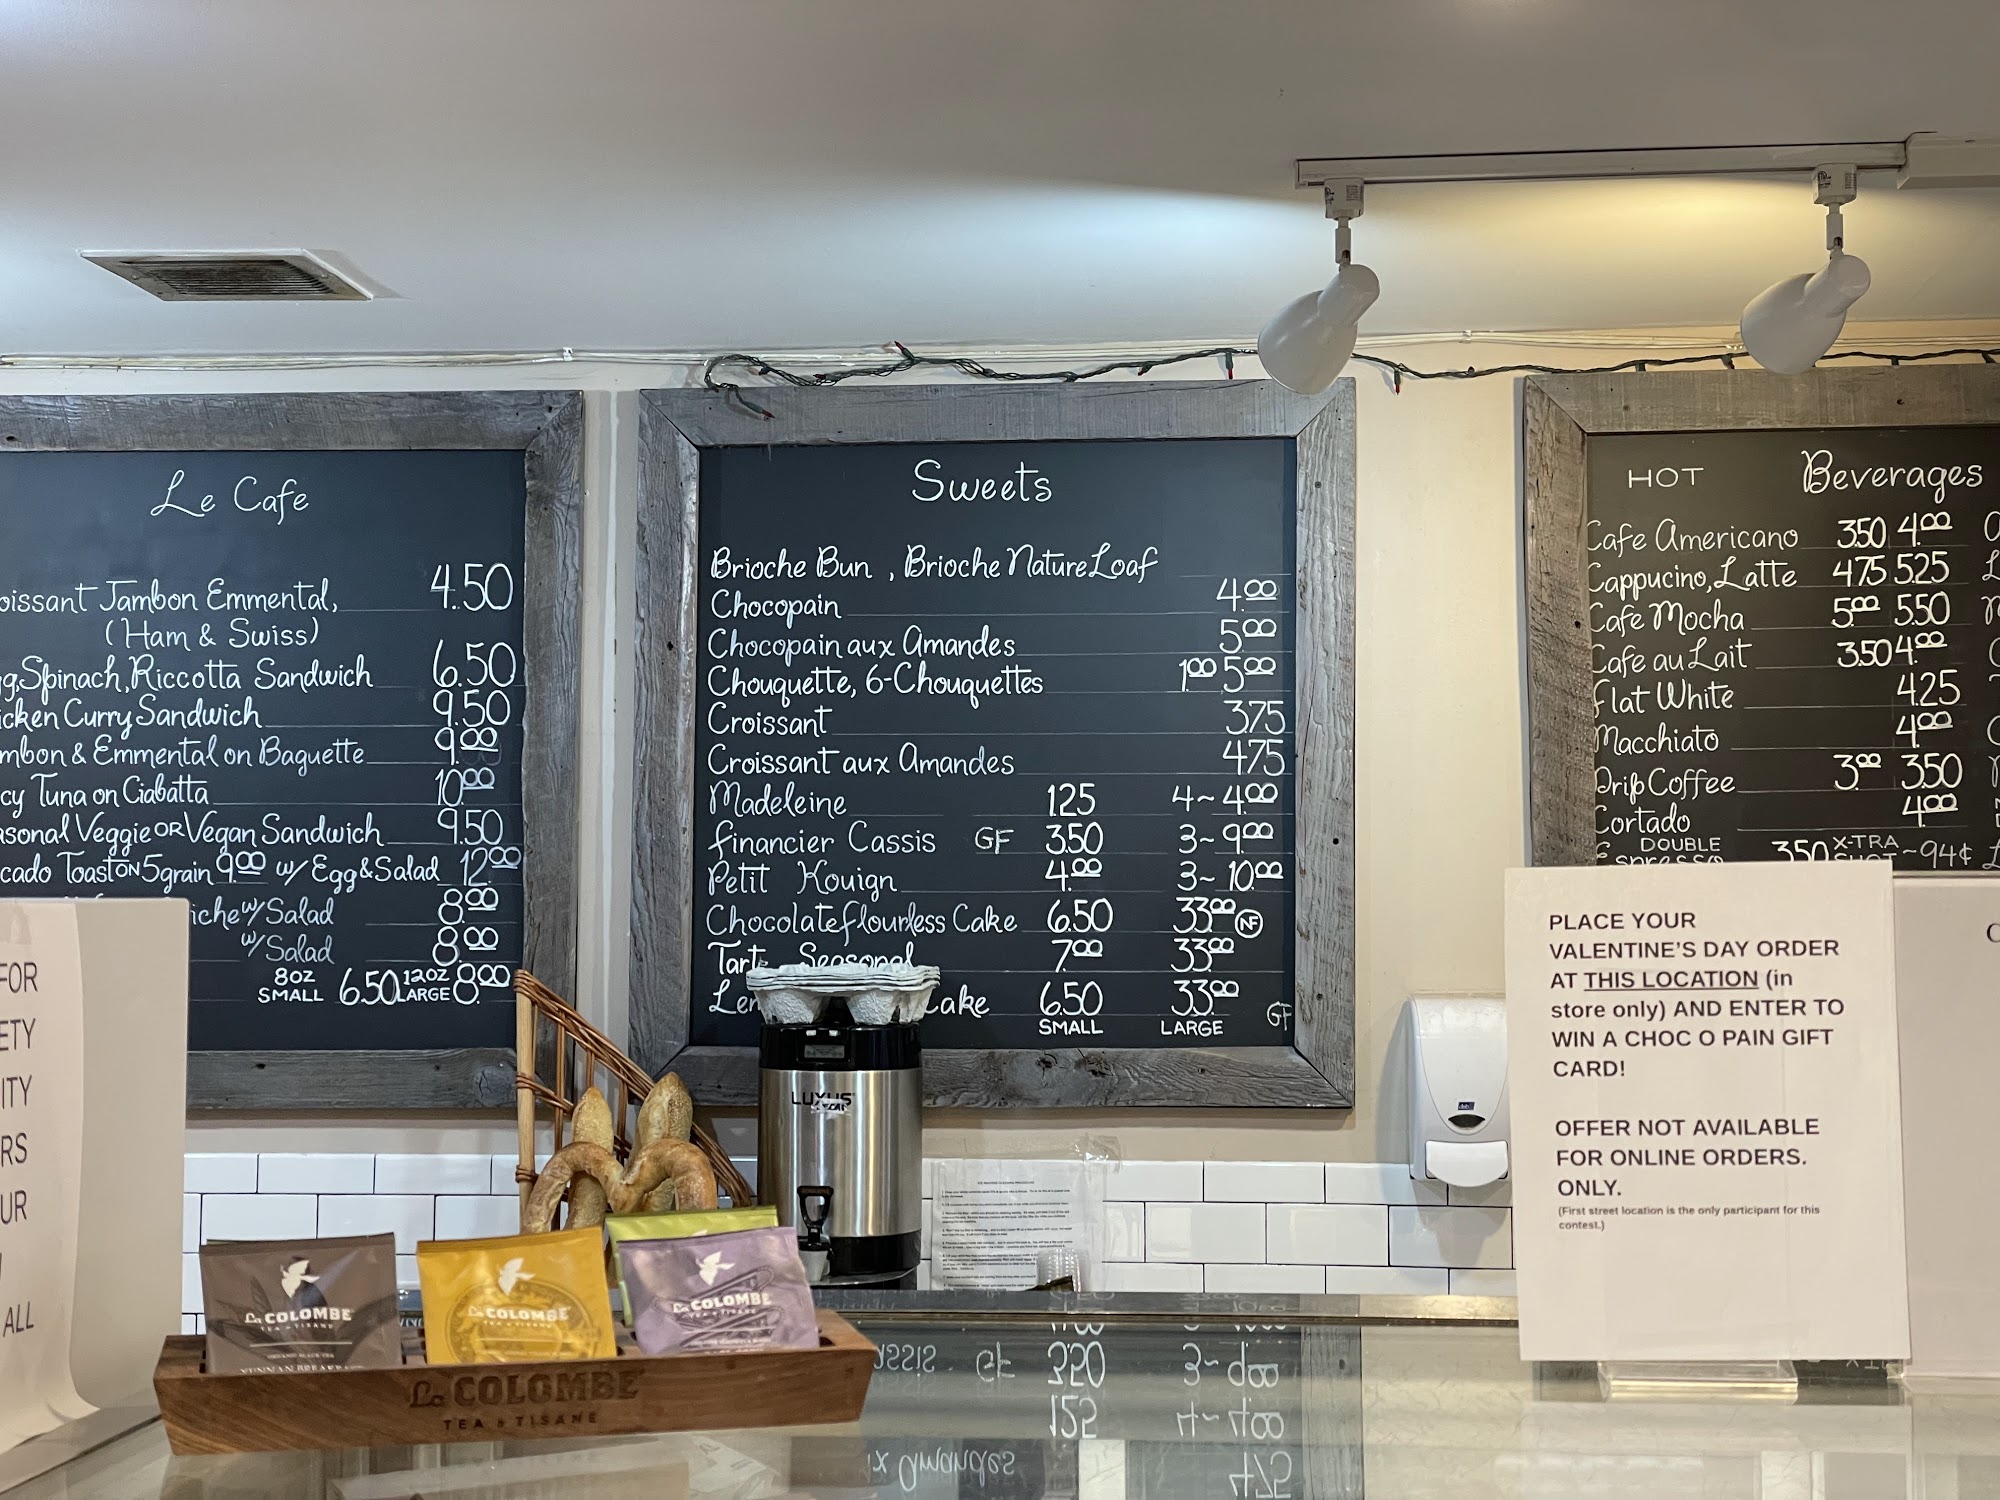 Le Cafe
oissant Jambon Emmental, 4.50
(Ham & Swiss)
gg, Spinach, Riccotta Sandwich 6.50
icken Curry Sandwich 9.50
mbon & Emmental on Baguette 9.00
cy Tuna on Ciabatta 10.00
asonal Veggie OR Vegan Sandwich 9.50
cado Toast ON 5grain 9.00 w/ Egg & Salad 12.00
iche w/ Salad 8.00
w/ Salad 8.00
8OZ SMALL 6.50 12OZ LARGE 8.00
Sweets
Brioche Bun , Brioche Nature Loaf
Chocopain 4.00
Chocopain aux Amandes 5.00
Chouquette, 6-Chouquettes 1.00 5.00
Croissant 3.75
Croissant aux Amandes 4.75
Madeleine 1.25 4~ 4.00
Financier Cassis GF 3.50 3~ 9.00
Petit Kouign 4.00 3~ 10.00
Chocolate flourless Cake 6.50 33.00 NF
Tart Seasonal 7.00 33.00
Len Cake 6.50 33.00 GF
SMALL LARGE
HOT Beverages
Cafe Americano 3.50 4.00
Cappucino, Latte 4.75 5.25
Cafe Mocha 5.00 5.50
Cafe au Lait 3.50 4.00
Flat White 4.25
Macchiato 4.00
Drip Coffee 3.00 3.50
Cortado 4.00
DOUBLE Espresso 3.50 X-TRA SHOT ~94¢
FOR
ETY
ITY
RS
UR
ALL
PLACE YOUR
VALENTINE'S DAY ORDER
AT THIS LOCATION (in
store only) AND ENTER TO
WIN A CHOC O PAIN GIFT
CARD!
OFFER NOT AVAILABLE
FOR ONLINE ORDERS.
ONLY.
(First street location is the only participant for this
contest.)
LUXUS
La COLOMBE
TEA & TISANE
ORGANIC BLACK TEA
YUNNAN BREAKFAST
La COLOMBE
TEA & TISANE
La COLOMBE
TEA & TISANE
La COLOMBE
TEA & TISANE